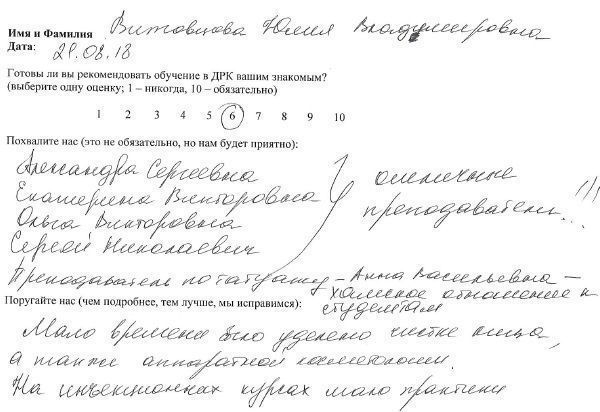 Имя и Фамилия Витовцова Юлия Владимировна
Дата: 21.08.18
Готовы ли вы рекомендовать обучение в ДРК вашим знакомым?
(выберите одну оценку; 1 – никогда, 10 – обязательно)
1 2 3 4 5 6 7 8 9 10
Похвалите нас (это не обязательно, но нам будет приятно):
Александра Сергеевна
Екатерина Викторовна
Ольга Викторовна
Сергей Николаевич
отличные
преподаватели...!!!
Преподаватель по татуажу – Анна Васильевна –
хамское отношение к
студентам
Поругайте нас (чем подробнее, тем лучше, мы исправимся):
Мало времени было уделено чистке лица,
а также аппаратной косметологии.
На инъекционных курсах мало практики